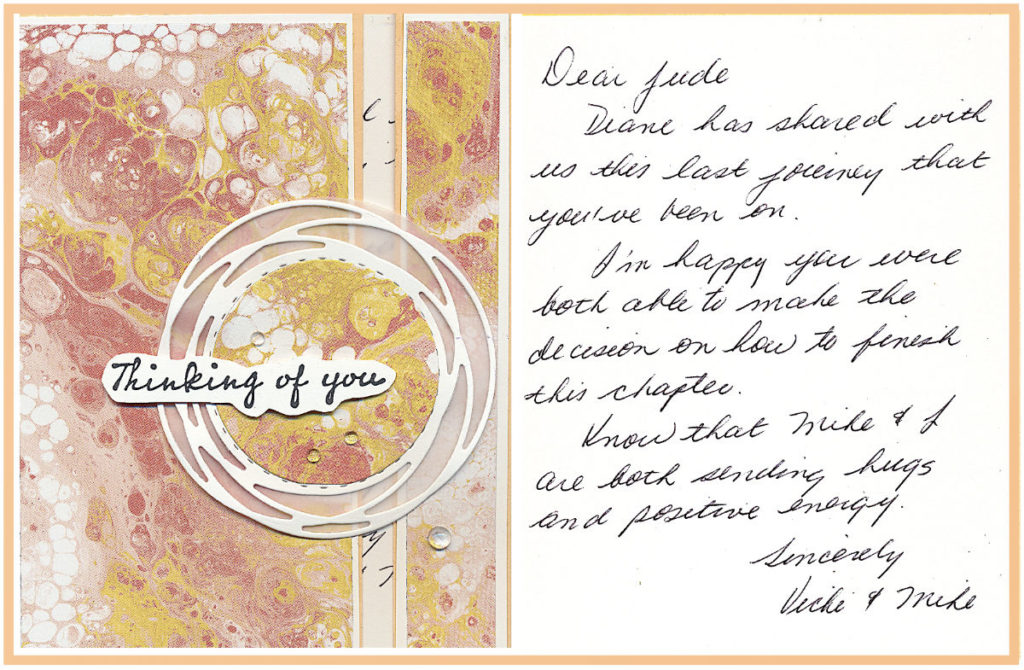 Thinking of you
Dear Jude
Diane has shared with
us this last journey that
you've been on.
I'm happy you were
both able to make the
decision on how to finish
this chapter.
Know that Mike & I
are both sending hugs
and positive energy.
Sincerely
Vicki & Mike